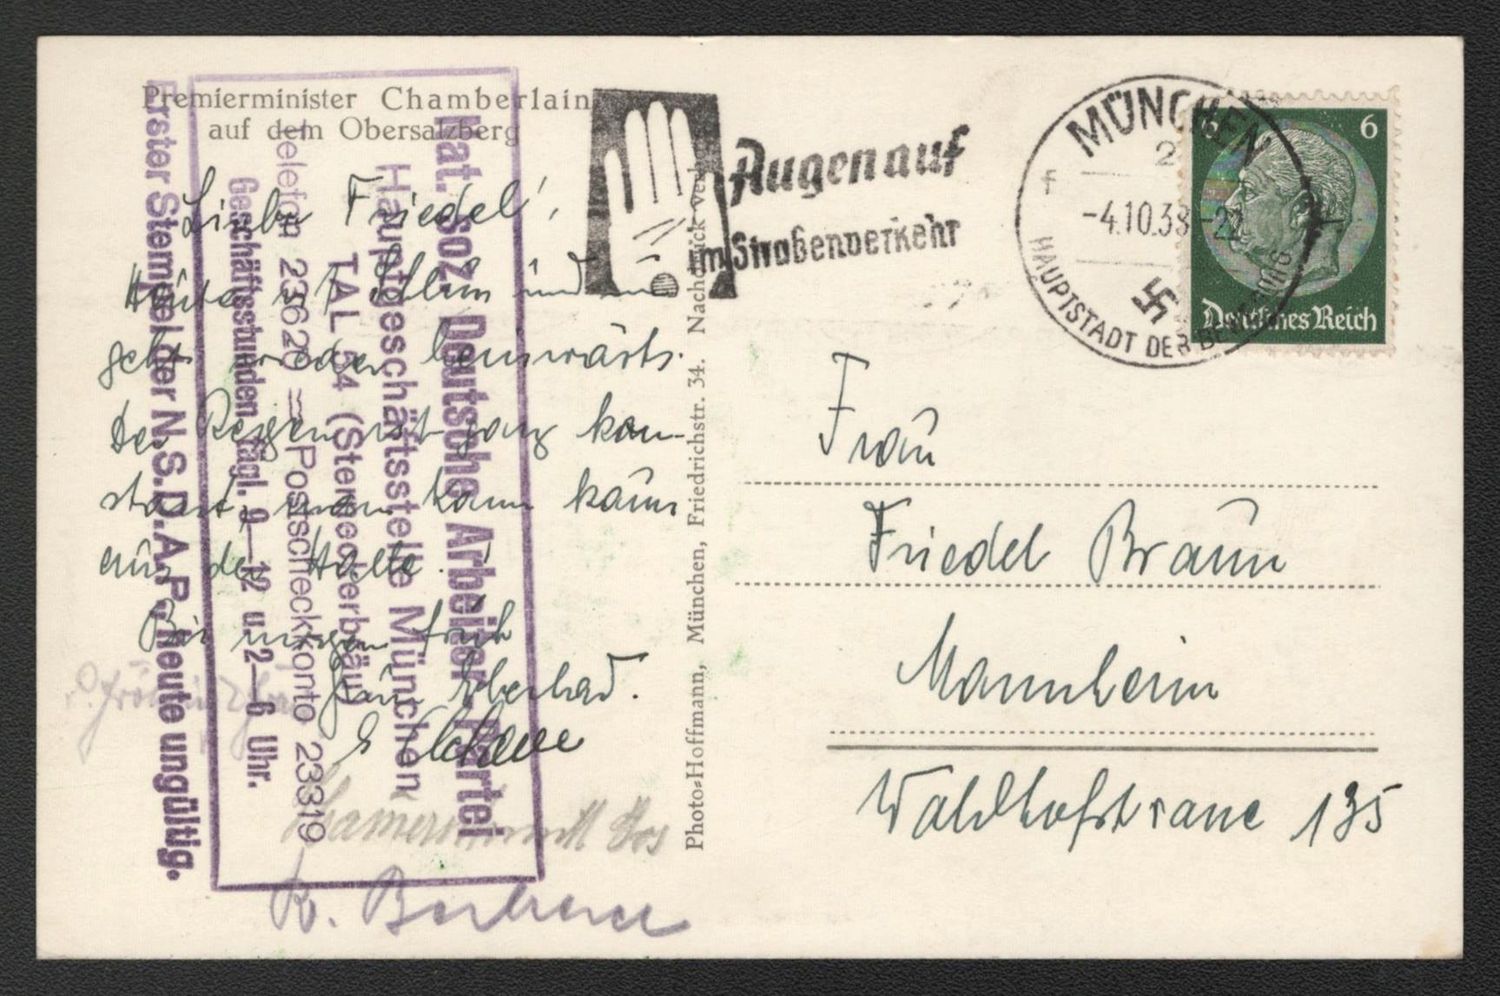 Premierminister Chamberlain
auf dem Obersalzberg
Liebe Friedel!,
Heute ist Schluss und
geht wieder heimwärts.
Der Regen ist ganz kon-
stant, man kann kaum
aus der Halle.
Bis morgen früh
Dein Eberhard.
K.
Erster Stempel der N.S.D.A.P. heute ungültig.
Geschäftsstunden tägl. 9—12 u. 2—6 Uhr.
Telefon 23620 = Postscheckkonto 23319
TAL 54 (Sterneckerbäu)
Hauptgeschäftsstelle München
Nat. soz. Deutsche Arbeiter-Partei
Photo=Hoffmann, München, Friedrichstr. 34. Nachdruck verb.
Augen auf
im Straßenverkehr
MÜNCHEN
2
f
-4.10.38-22
HAUPTSTADT DER BEWEGUNG
6 6
Deutsches Reich
Frau
Friedel Braun
Mannheim
Waldhofstrasse 135